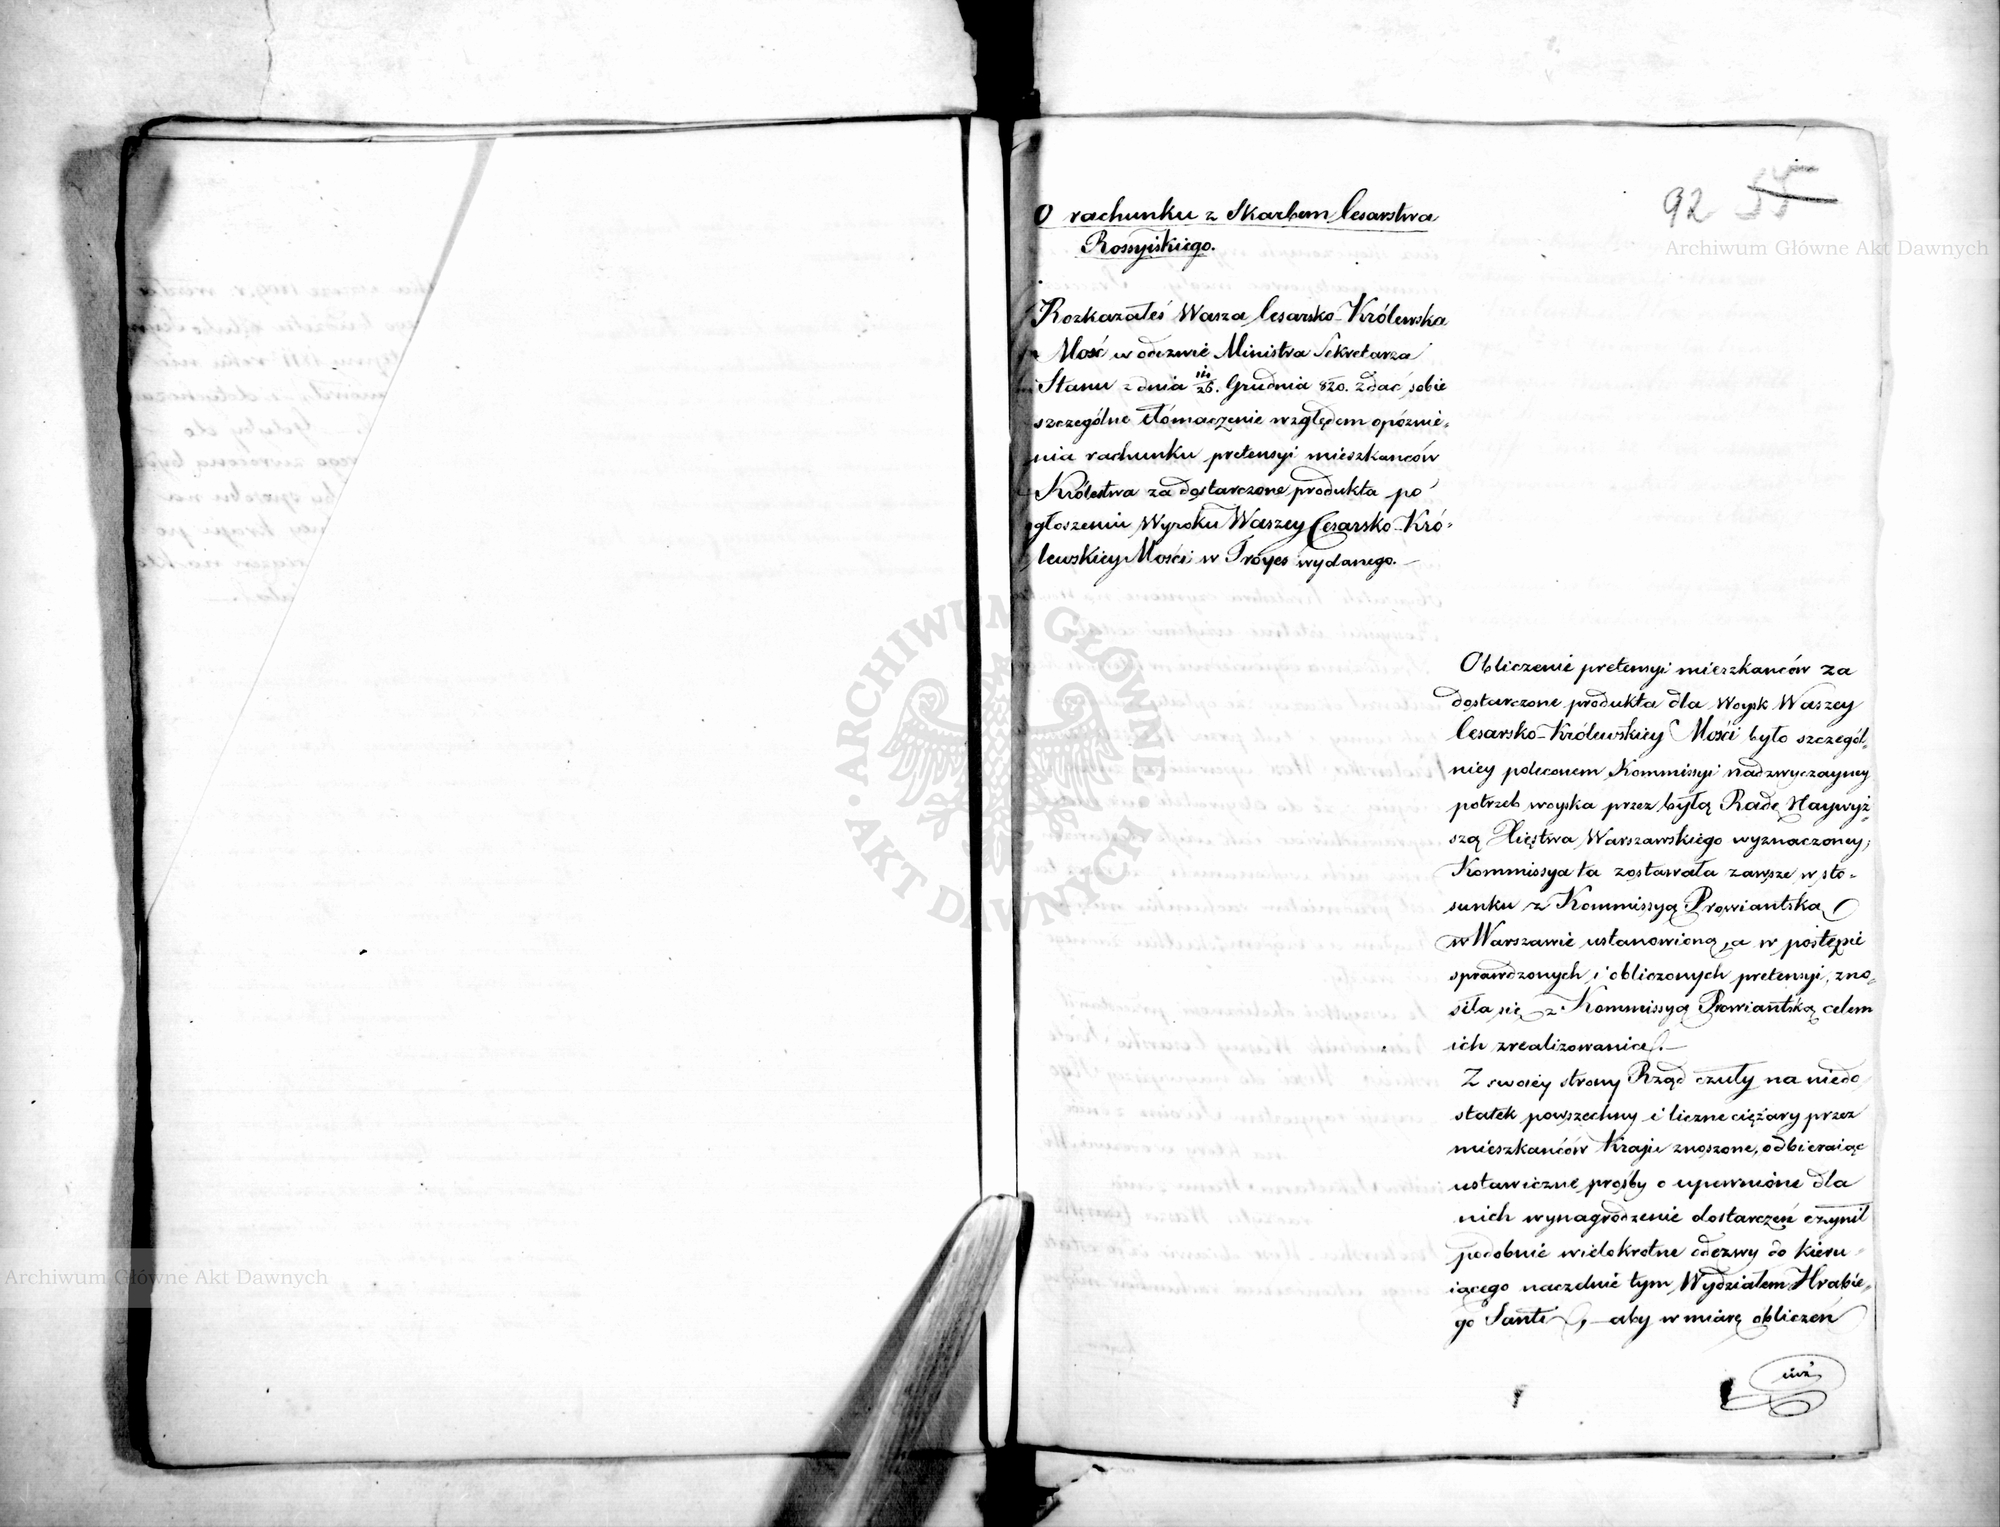 92 55
O rachunku z Skarbem Cesarstwa
Rossyiskiego.
Rozkazałeś Wasza Cesarsko-Królewska
Mość w odezwie Ministra Sekretarza
Stanu z dnia 14/26. Grudnia 820. zdać sobie
szczególne tłómaczenie względem opóźnie-
nia rachunku pretensyi mieszkanców
Królestwa za dostarczone produkta po
ogłoszeniu Wyroku Waszey Cesarsko-Kró-
lewskiey Mości w Troyes wydanego. —
Obliczenie pretensyi mieszkanców za
dostarczone produkta dla Woysk Waszey
Cesarsko-Królewskiey Mości było szczegól-
niey poleconem Kommissyi nadzwyczayney
potrzeb woyska przez byłą Radę Naywyż-
szą Xięstwa Warszawskiego wyznaczoney;
Kommissya ta zostawała zawsze w sto-
sunku z Kommissyą Prowiantską
w Warszawie ustanowioną, a w postępie
sprawdzonych i obliczonych pretensyi, zno-
siła się z Kommissyą Prowiantską celem
ich zrealizowania. —
Z swoiey strony Rząd czuły na niedo
statek powszechny i liczne ciężary przez
mieszkańców Kraju znoszone, odbieraiąc
ustawiczne prośby o upewnione dla
nich wynagrodzenie dostarczeń czynił
podobnie wielokrotne odezwy do kieru-
iącego naczelnie tym Wydziałem Hrabie-
go Santi, — aby w miarę obliczeń
Archiwum Główne Akt Dawnych
ARCHIWUM GŁÓWNE · AKT DAWNYCH ·
Archiwum Główne Akt Dawnych